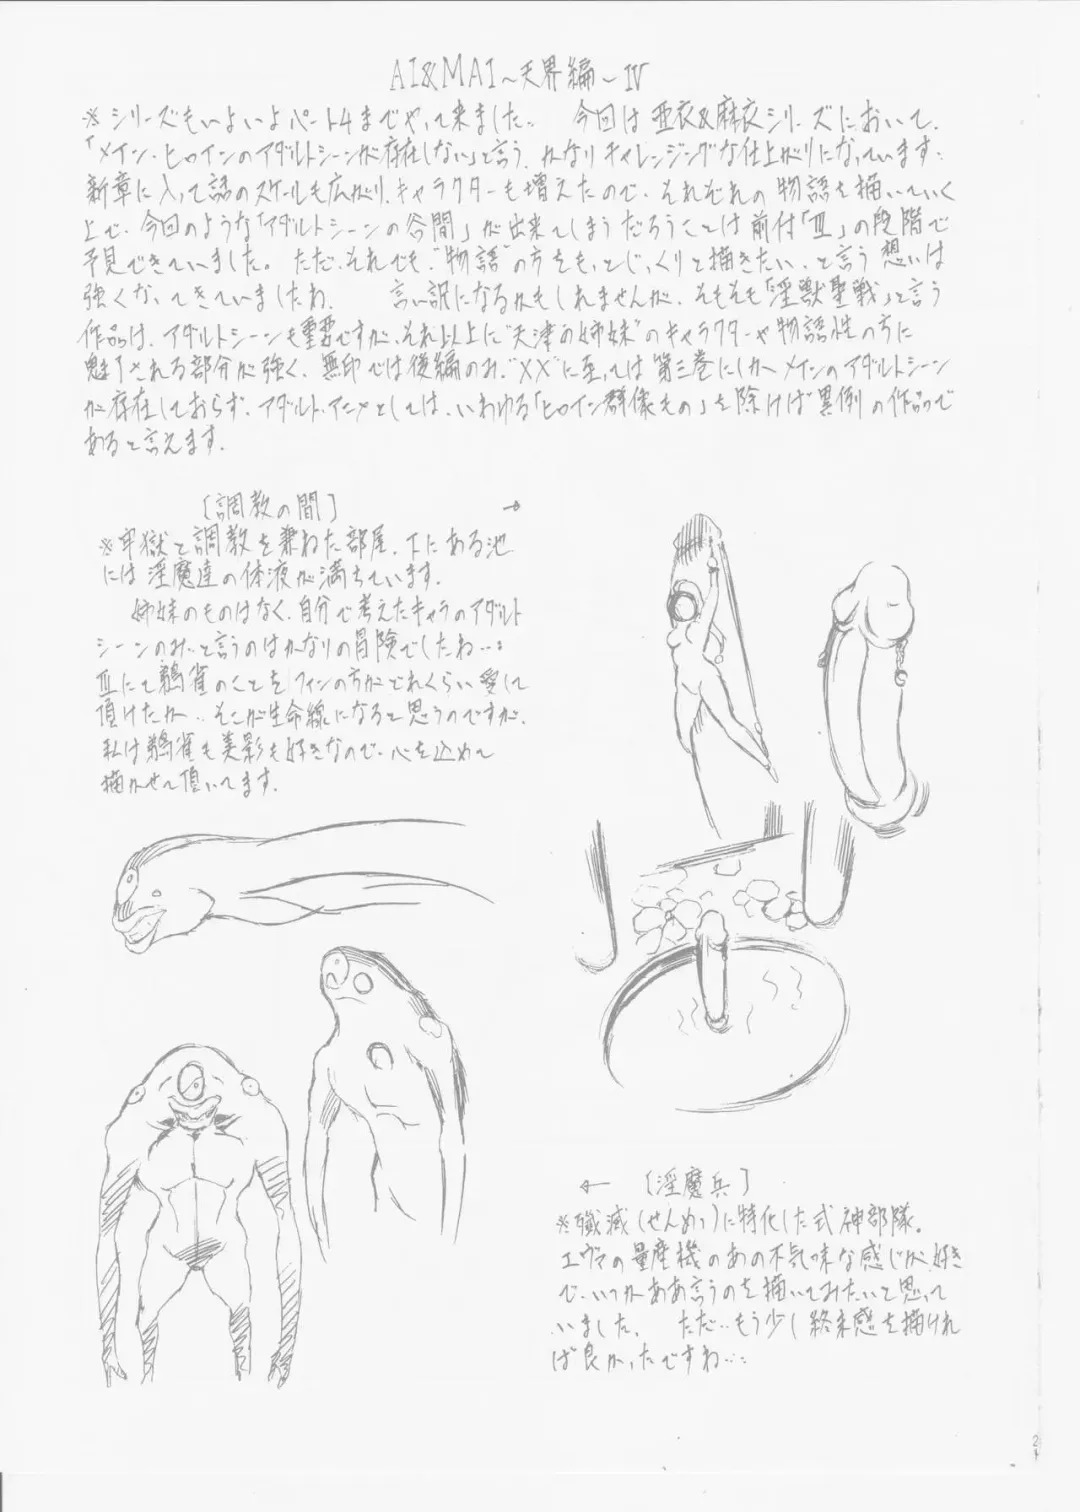 AI&MAI～天界編～Ⅳ
※シリーズもいよいよパート4までやって来ました。 今回は亜衣&麻衣シリーズにおいて、
「メイン・ヒロインのアダルトシーンが存在しない」と言う、かなりチャレンジングな仕上がりになっています…
新章に入って話のスケールも広がり、キャラクターも増えたので、それぞれの物語を描いていく
上で、今回のような「アダルトシーンの谷間」が出来てしまうだろうことは前付「Ⅲ」の段階で
予見できていました。 ただ、それでも、“物語”の方をもっとじっくりと描きたい、と言う想いは
強くなってきていましたね。 言い訳になるかもしれませんが、そもそも「淫獣聖戦」と言う
作品は、アダルトシーンも重要ですが、それ以上に“天津の姉妹”のキャラクターや物語性の方に
魅了される部分が強く、無印では後編のみ、“XX”に至っては第三巻にしかメインのアダルトシーン
が存在しておらず、アダルト・アニメとしては、いわゆる「ヒロイン群像もの」を除けば異例の作品で
あると言えます。
〔調教の間〕 →
※牢獄と調教を兼ねた部屋。下にある池
には淫魔達の体液が満ちています。
姉妹のものはなく、自分で考えたキャラのアダルト
シーンのみ…と言うのはかなりの冒険でしたね…。
Ⅲにて鵺雀のことをファンの方がどれくらい愛して
頂けたか…そこが生命線になると思うのですが、
私は鵺雀も美影も好きなので、心を込めて
描かせて頂いてます。
← 〔淫魔兵〕
※殲滅(せんめつ)に特化した式神部隊。
エヴァの量産機のあの不気味な感じが好き
で、いつかああ言うのを描いてみたいと思って
いました。 ただ…もう少し終末感を描けれ
ば良かったですね…
2